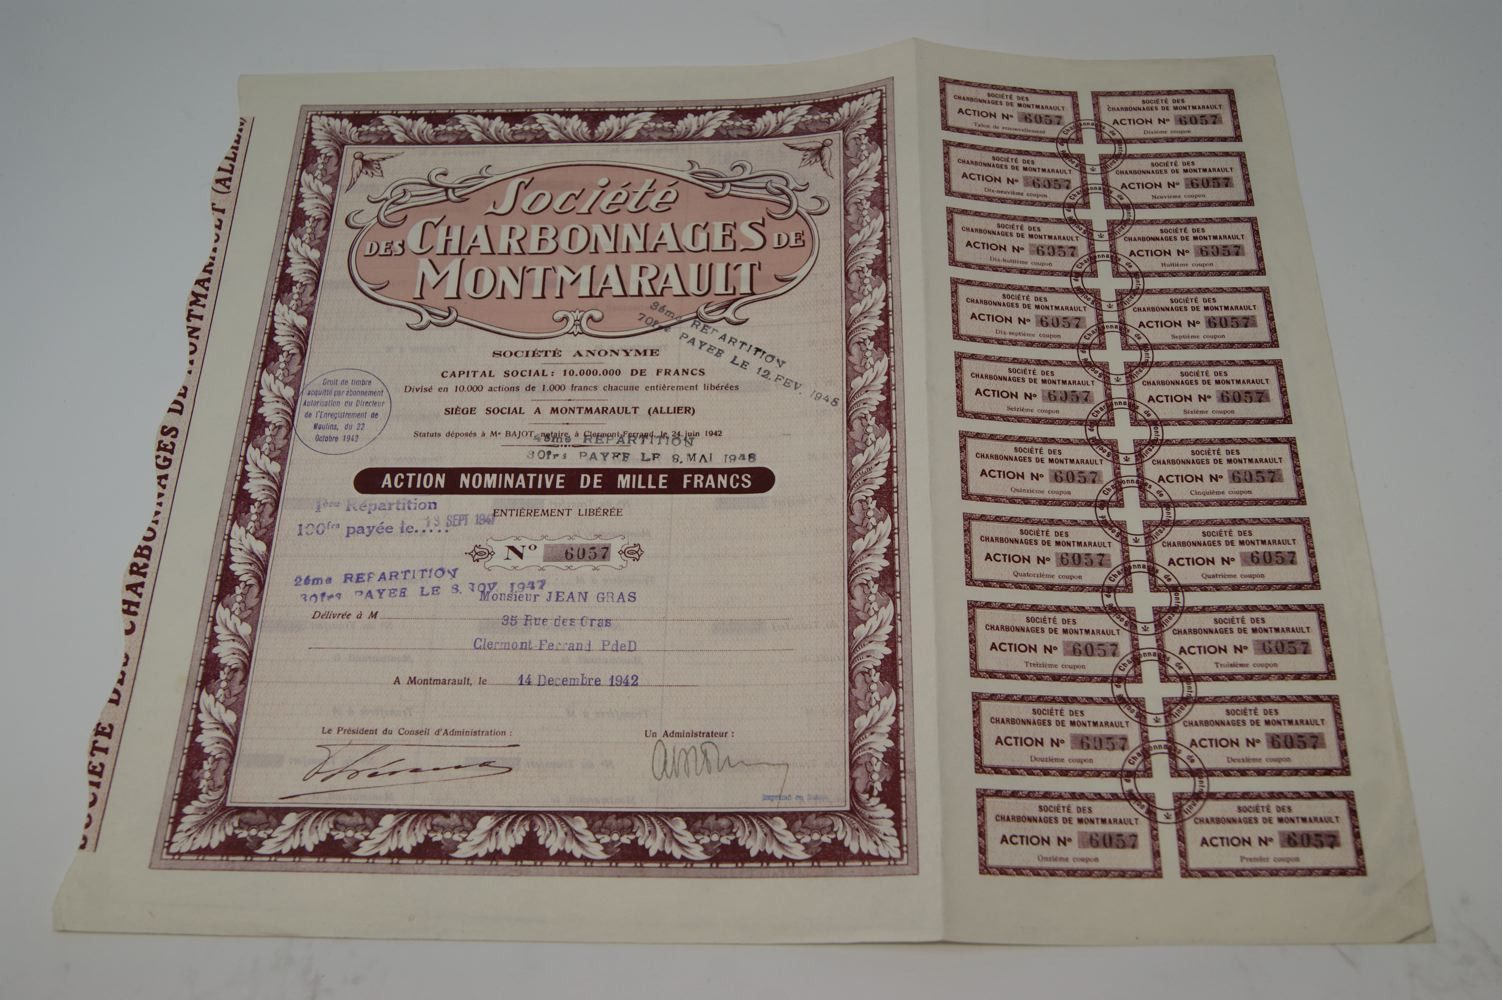 SOCIÉTÉ DES CHARBONNAGES DE MONTMARAULT (ALLIER)
Société
DES CHARBONNAGES DE
MONTMARAULT
3ème REPARTITION
70frs PAYEE LE 12.FEV. 1948
SOCIÉTÉ ANONYME
CAPITAL SOCIAL : 10.000.000 DE FRANCS
Divisé en 10.000 actions de 1.000 francs chacune entièrement libérées
SIÈGE SOCIAL A MONTMARAULT (ALLIER)
Statuts déposés à Me BAJOT, notaire à Clermont-Ferrand, le 24 juin 1942
Droit de timbre
acquitté par abonnement
Autorisation du Directeur
de l'Enregistrement de
Moulins, du 22
Octobre 1942
4ème REPARTITION
30frs PAYEE LE 8.MAI 1948
ACTION NOMINATIVE DE MILLE FRANCS
ENTIÈREMENT LIBÉRÉE
1ère Répartition
100frs payée le..... 13 SEPT 1947
No 6057
2ème REPARTITION
30frs PAYEE LE 8.NOV. 1947
Monsieur JEAN GRAS
Délivrée à M
35 Rue des Gras
Clermont-Ferrand PdeD
A Montmarault, le 14 Decembre 1942
Le Président du Conseil d'Administration :
Un Administrateur :
SOCIÉTÉ DES
CHARBONNAGES DE MONTMARAULT
ACTION No 6057
Talon de renouvellement
SOCIÉTÉ DES
CHARBONNAGES DE MONTMARAULT
ACTION No 6057
Dixième coupon
SOCIÉTÉ DES
CHARBONNAGES DE MONTMARAULT
ACTION No 6057
Dix-neuvième coupon
SOCIÉTÉ DES
CHARBONNAGES DE MONTMARAULT
ACTION No 6057
Neuvième coupon
SOCIÉTÉ DES
CHARBONNAGES DE MONTMARAULT
ACTION No 6057
Dix-huitième coupon
SOCIÉTÉ DES
CHARBONNAGES DE MONTMARAULT
ACTION No 6057
Huitième coupon
SOCIÉTÉ DES
CHARBONNAGES DE MONTMARAULT
ACTION No 6057
Dix-septième coupon
SOCIÉTÉ DES
CHARBONNAGES DE MONTMARAULT
ACTION No 6057
Septième coupon
SOCIÉTÉ DES
CHARBONNAGES DE MONTMARAULT
ACTION No 6057
Seizième coupon
SOCIÉTÉ DES
CHARBONNAGES DE MONTMARAULT
ACTION No 6057
Sixième coupon
SOCIÉTÉ DES
CHARBONNAGES DE MONTMARAULT
ACTION No 6057
Quinzième coupon
SOCIÉTÉ DES
CHARBONNAGES DE MONTMARAULT
ACTION No 6057
Cinquième coupon
SOCIÉTÉ DES
CHARBONNAGES DE MONTMARAULT
ACTION No 6057
Quatorzième coupon
SOCIÉTÉ DES
CHARBONNAGES DE MONTMARAULT
ACTION No 6057
Quatrième coupon
SOCIÉTÉ DES
CHARBONNAGES DE MONTMARAULT
ACTION No 6057
Treizième coupon
SOCIÉTÉ DES
CHARBONNAGES DE MONTMARAULT
ACTION No 6057
Troisième coupon
SOCIÉTÉ DES
CHARBONNAGES DE MONTMARAULT
ACTION No 6057
Douzième coupon
SOCIÉTÉ DES
CHARBONNAGES DE MONTMARAULT
ACTION No 6057
Deuxième coupon
SOCIÉTÉ DES
CHARBONNAGES DE MONTMARAULT
ACTION No 6057
Onzième coupon
SOCIÉTÉ DES
CHARBONNAGES DE MONTMARAULT
ACTION No 6057
Premier coupon